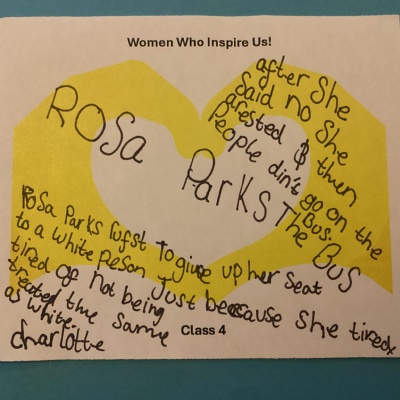 Women Who Inspire Us!
ROSa
ParKS
after She
Said no She
arested & then
People din't go on the
Bus.
The BuS
Rosa Parks rufst To give up her Seat
to a white peson Just because She tired
tired of not being
treated the Same
as white.
Charlotte
Class 4